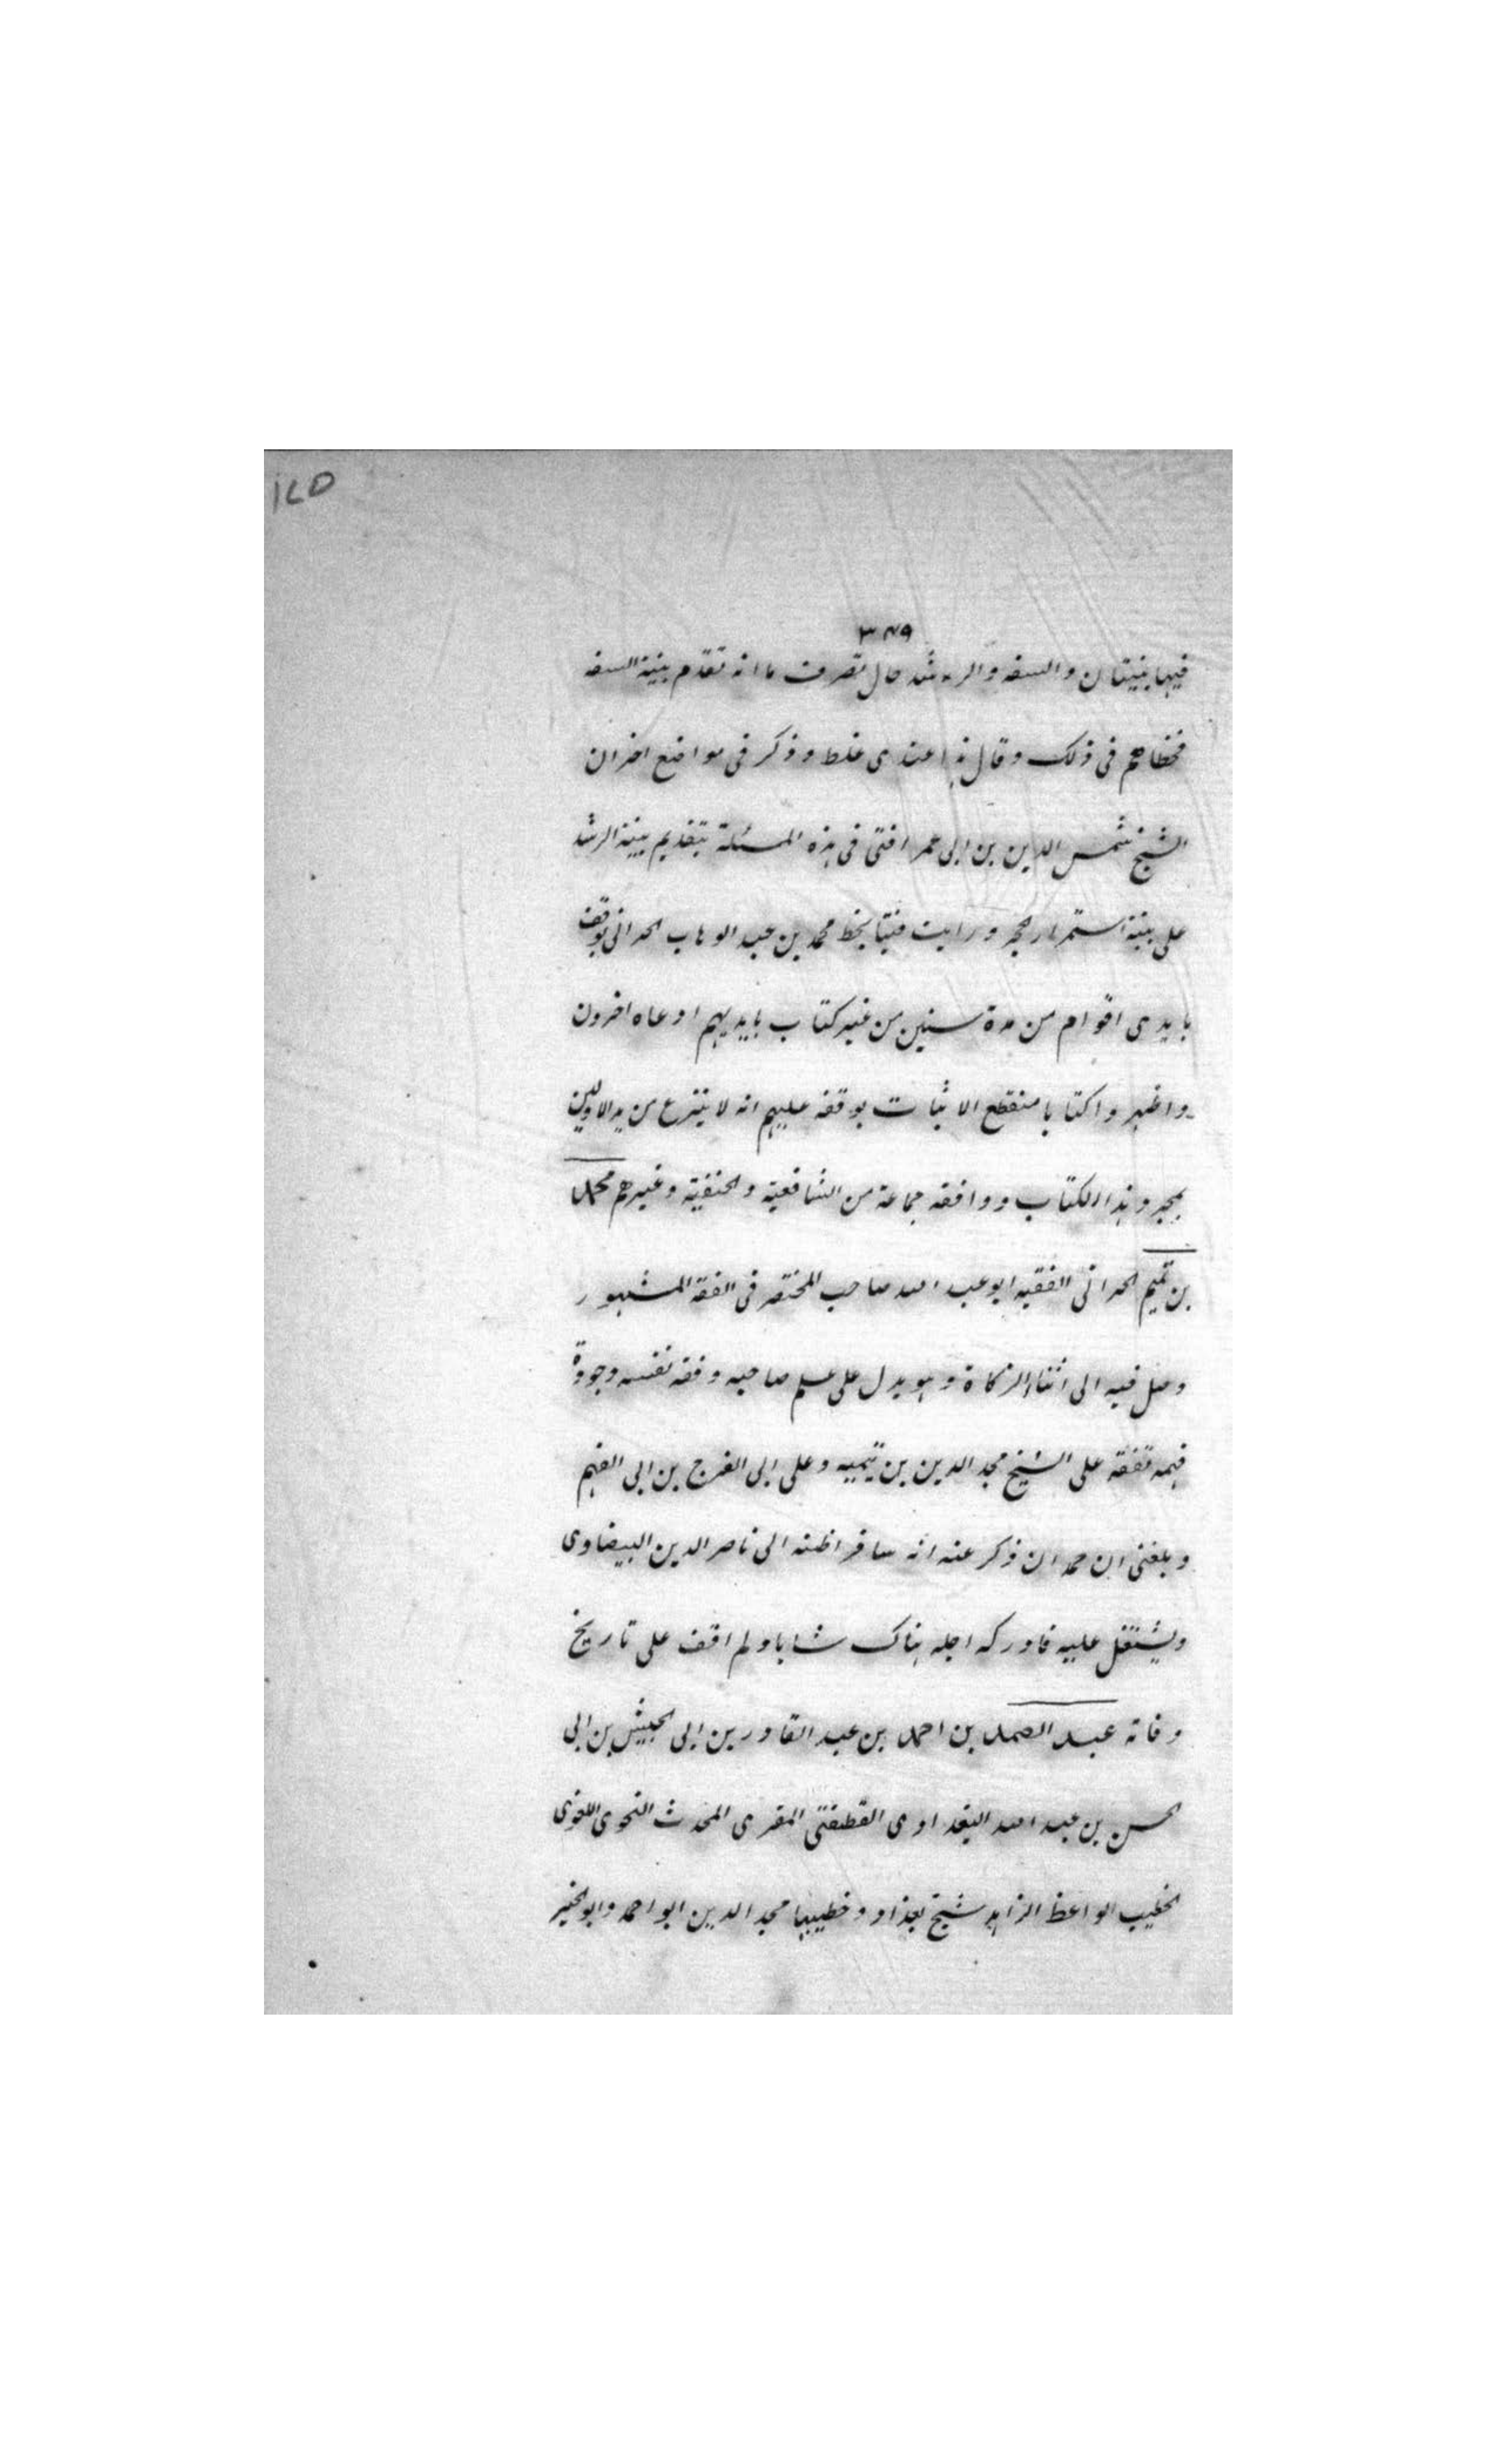 ١٧٥
٣٧٩
فيها بينتان والسفه والرشد حال تصرف ما انه تقدم بينة السفه
فخطاهم فى ذلك وقال هذا عندى غلط وذكر فى مواضع اخر ان
الشيخ شمس الدين بن ابى عمر افتى فى هذه المسئلة بتقديم بينة الرشد
على بينة استمرار الحجر ورايت فتيا بخط محمد بن عبد الوهاب الحرانى بوقف
بايدى اقوام من مدة سنين من غير كتاب بايديهم ادعاه اخرون
واظهروا كتابا منقطع الاثبات بوقفه عليهم انه لا ينزع من يد الاولين
بمجرد هذا الكتاب ووافقه جماعة من الشافعية والحنفية وغيرهم محمد
بن تميم الحرانى الفقيه ابو عبد الله صاحب المختصر فى الفقه المشهور
وصل فيه الى اثناء الزكاة وهو يدل على علم صاحبه وفقه نفسه وجودة
فهمه تفقه على الشيخ مجد الدين بن تيميه وعلى ابى الفرج بن ابى الفهم
وبلغنى ان حمدان ذكر عنه انه سافر اظنه الى ناصر الدين البيضاوى
ويشتغل عليه فادركه اجله هناك شابا ولم اقف على تاريخ
وفاته عبد الصمد بن احمد بن عبد القادر بن ابى الجيش بن ابى
الحسن بن عبد الله البغدادى القطفتى المقرى المحدث النحوى اللغوى
الخطيب الواعظ الزاهد شيخ بغداد وخطيبها مجد الدين ابو احمد وابو الخير